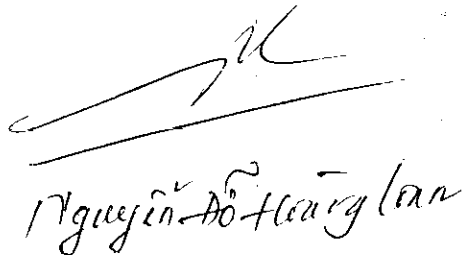 Nguyễn Đỗ Hoàng Loan